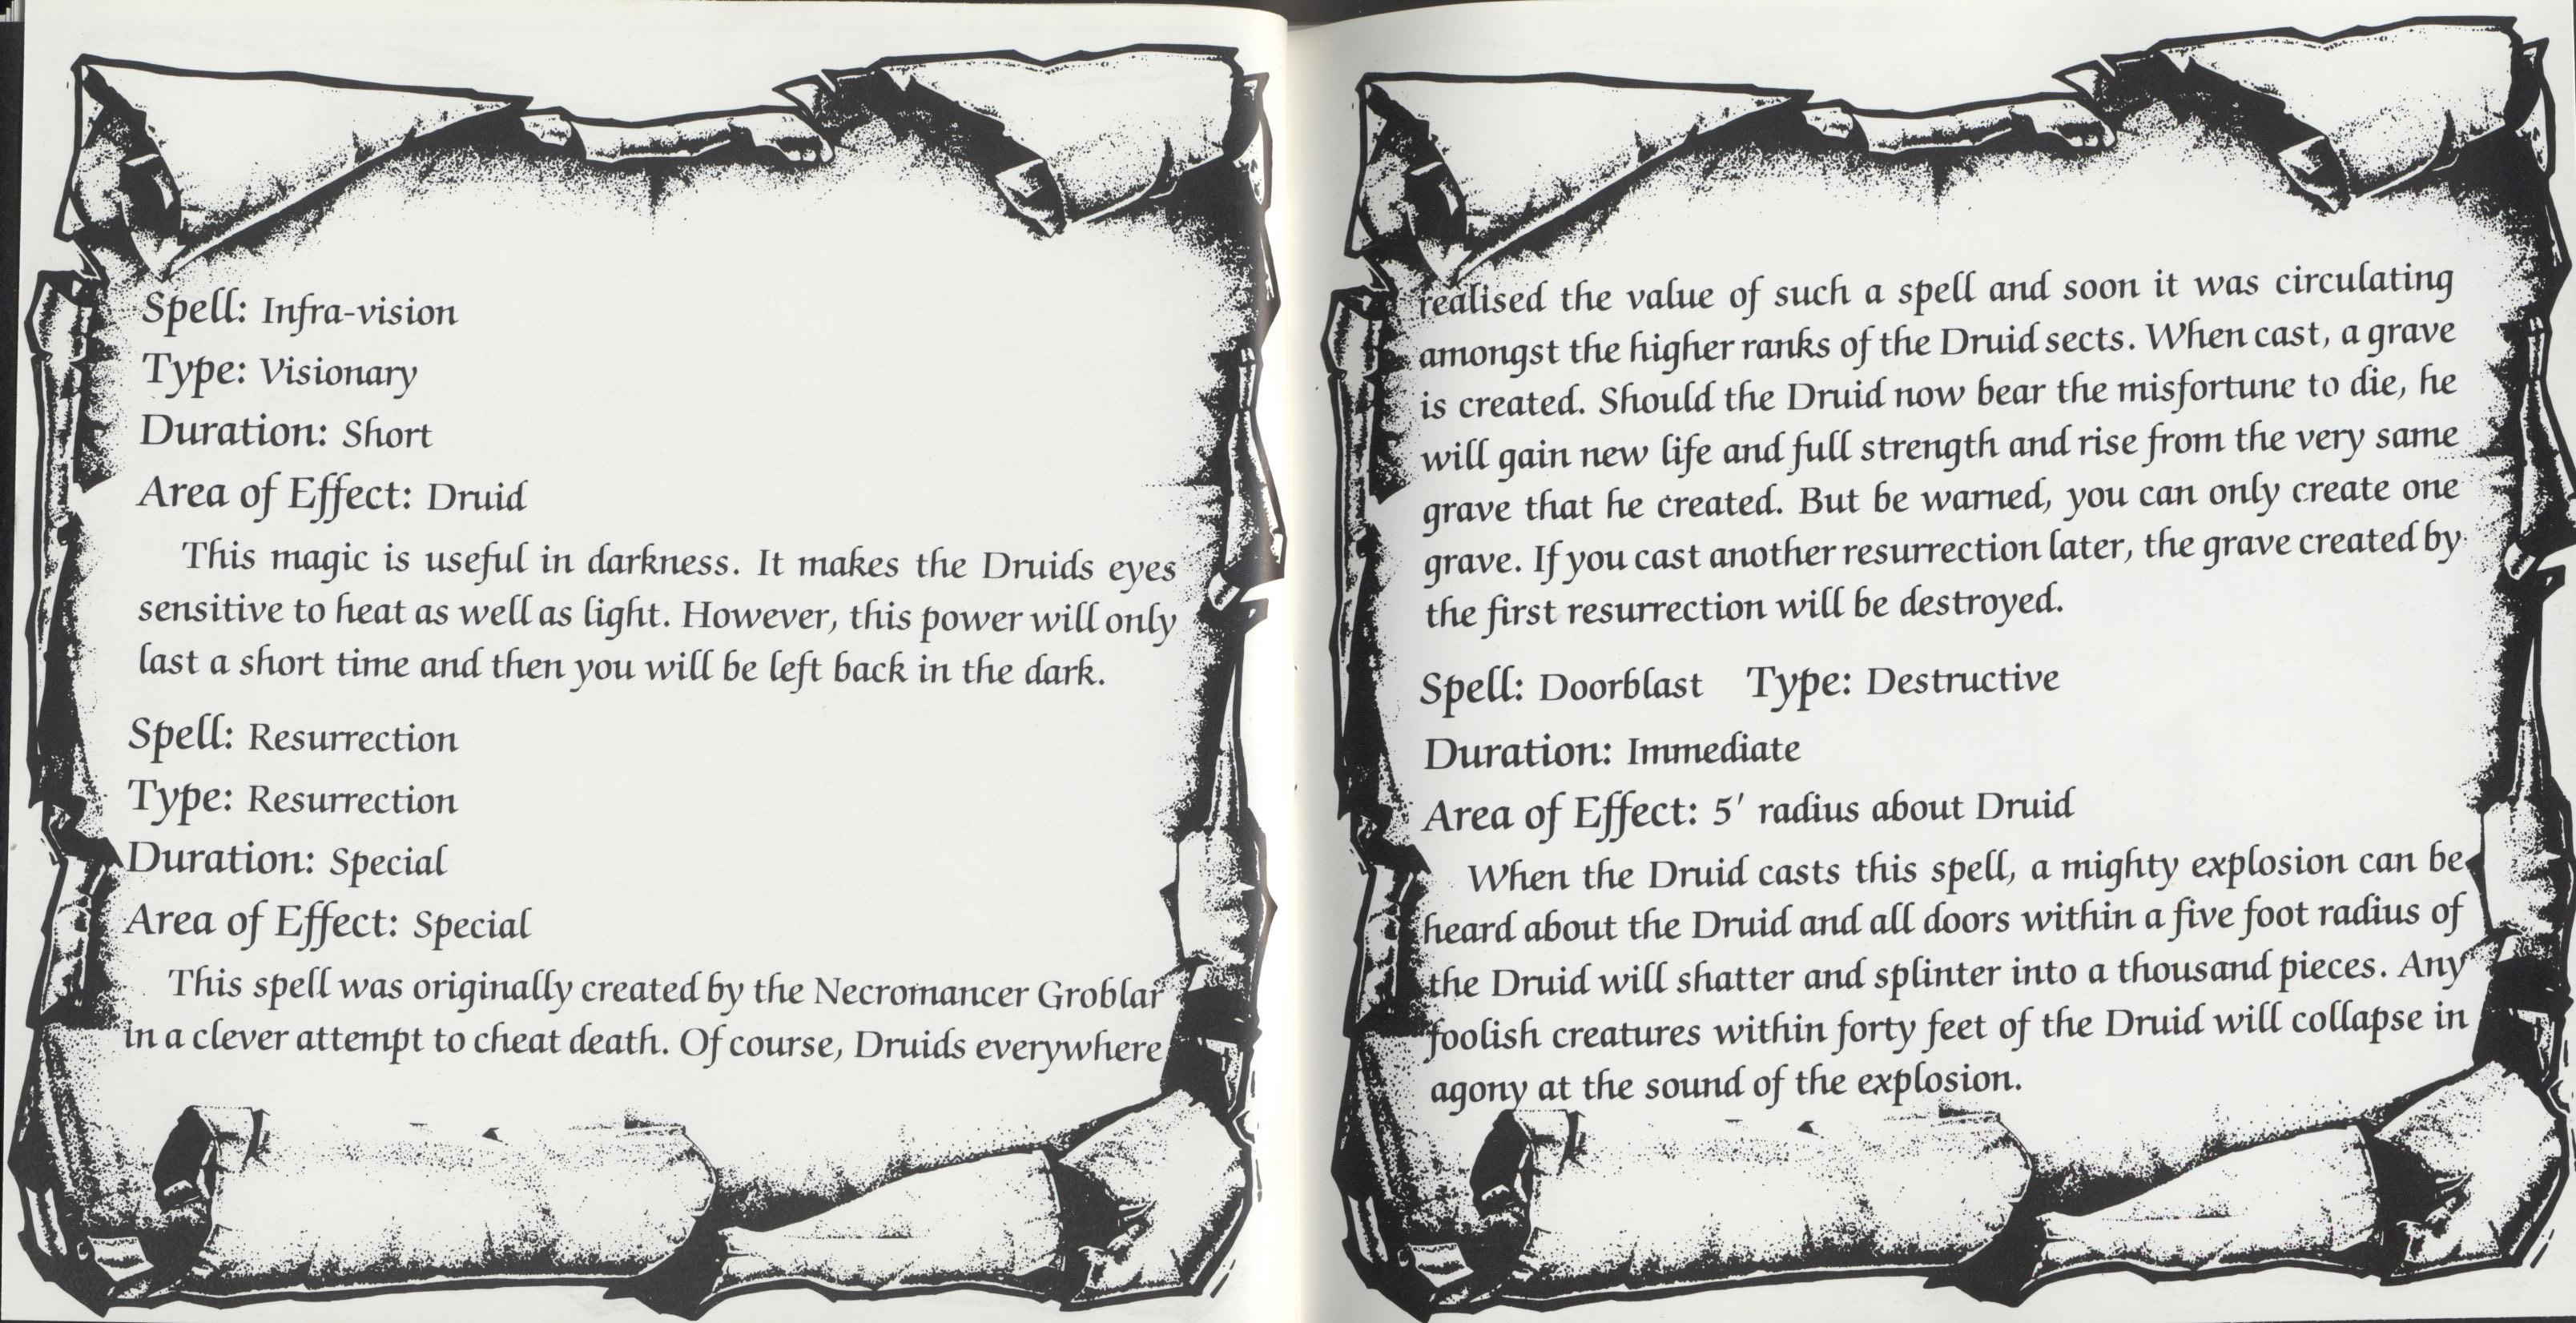 Spell: Infra-vision
Type: Visionary
Duration: Short
Area of Effect: Druid
This magic is useful in darkness. It makes the Druids eyes
sensitive to heat as well as light. However, this power will only
last a short time and then you will be left back in the dark.
Spell: Resurrection
Type: Resurrection
Duration: Special
Area of Effect: Special
This spell was originally created by the Necromancer Groblar
in a clever attempt to cheat death. Of course, Druids everywhere
realised the value of such a spell and soon it was circulating
amongst the higher ranks of the Druid sects. When cast, a grave
is created. Should the Druid now bear the misfortune to die, he
will gain new life and full strength and rise from the very same
grave that he created. But be warned, you can only create one
grave. If you cast another resurrection later, the grave created by
the first resurrection will be destroyed.
Spell: Doorblast Type: Destructive
Duration: Immediate
Area of Effect: 5' radius about Druid
When the Druid casts this spell, a mighty explosion can be
heard about the Druid and all doors within a five foot radius of
the Druid will shatter and splinter into a thousand pieces. Any
foolish creatures within forty feet of the Druid will collapse in
agony at the sound of the explosion.